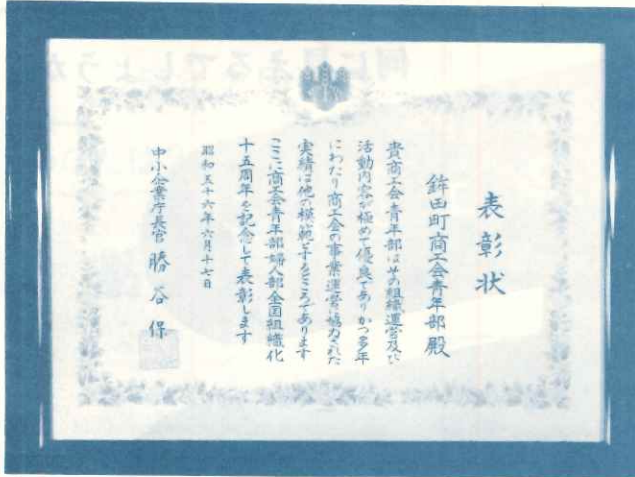 表彰状
鉾田町商工会青年部殿
貴商工会青年部はその組織運営及び
活動内容が極めて優良でありかつ多年
にわたり商工会の事業運営に協力された
実績は他の模範とするところであります
ここに商工会青年部婦人部全国組織化
十五周年を記念して表彰します
昭和五十六年六月十七日
中小企業庁長官 勝谷保